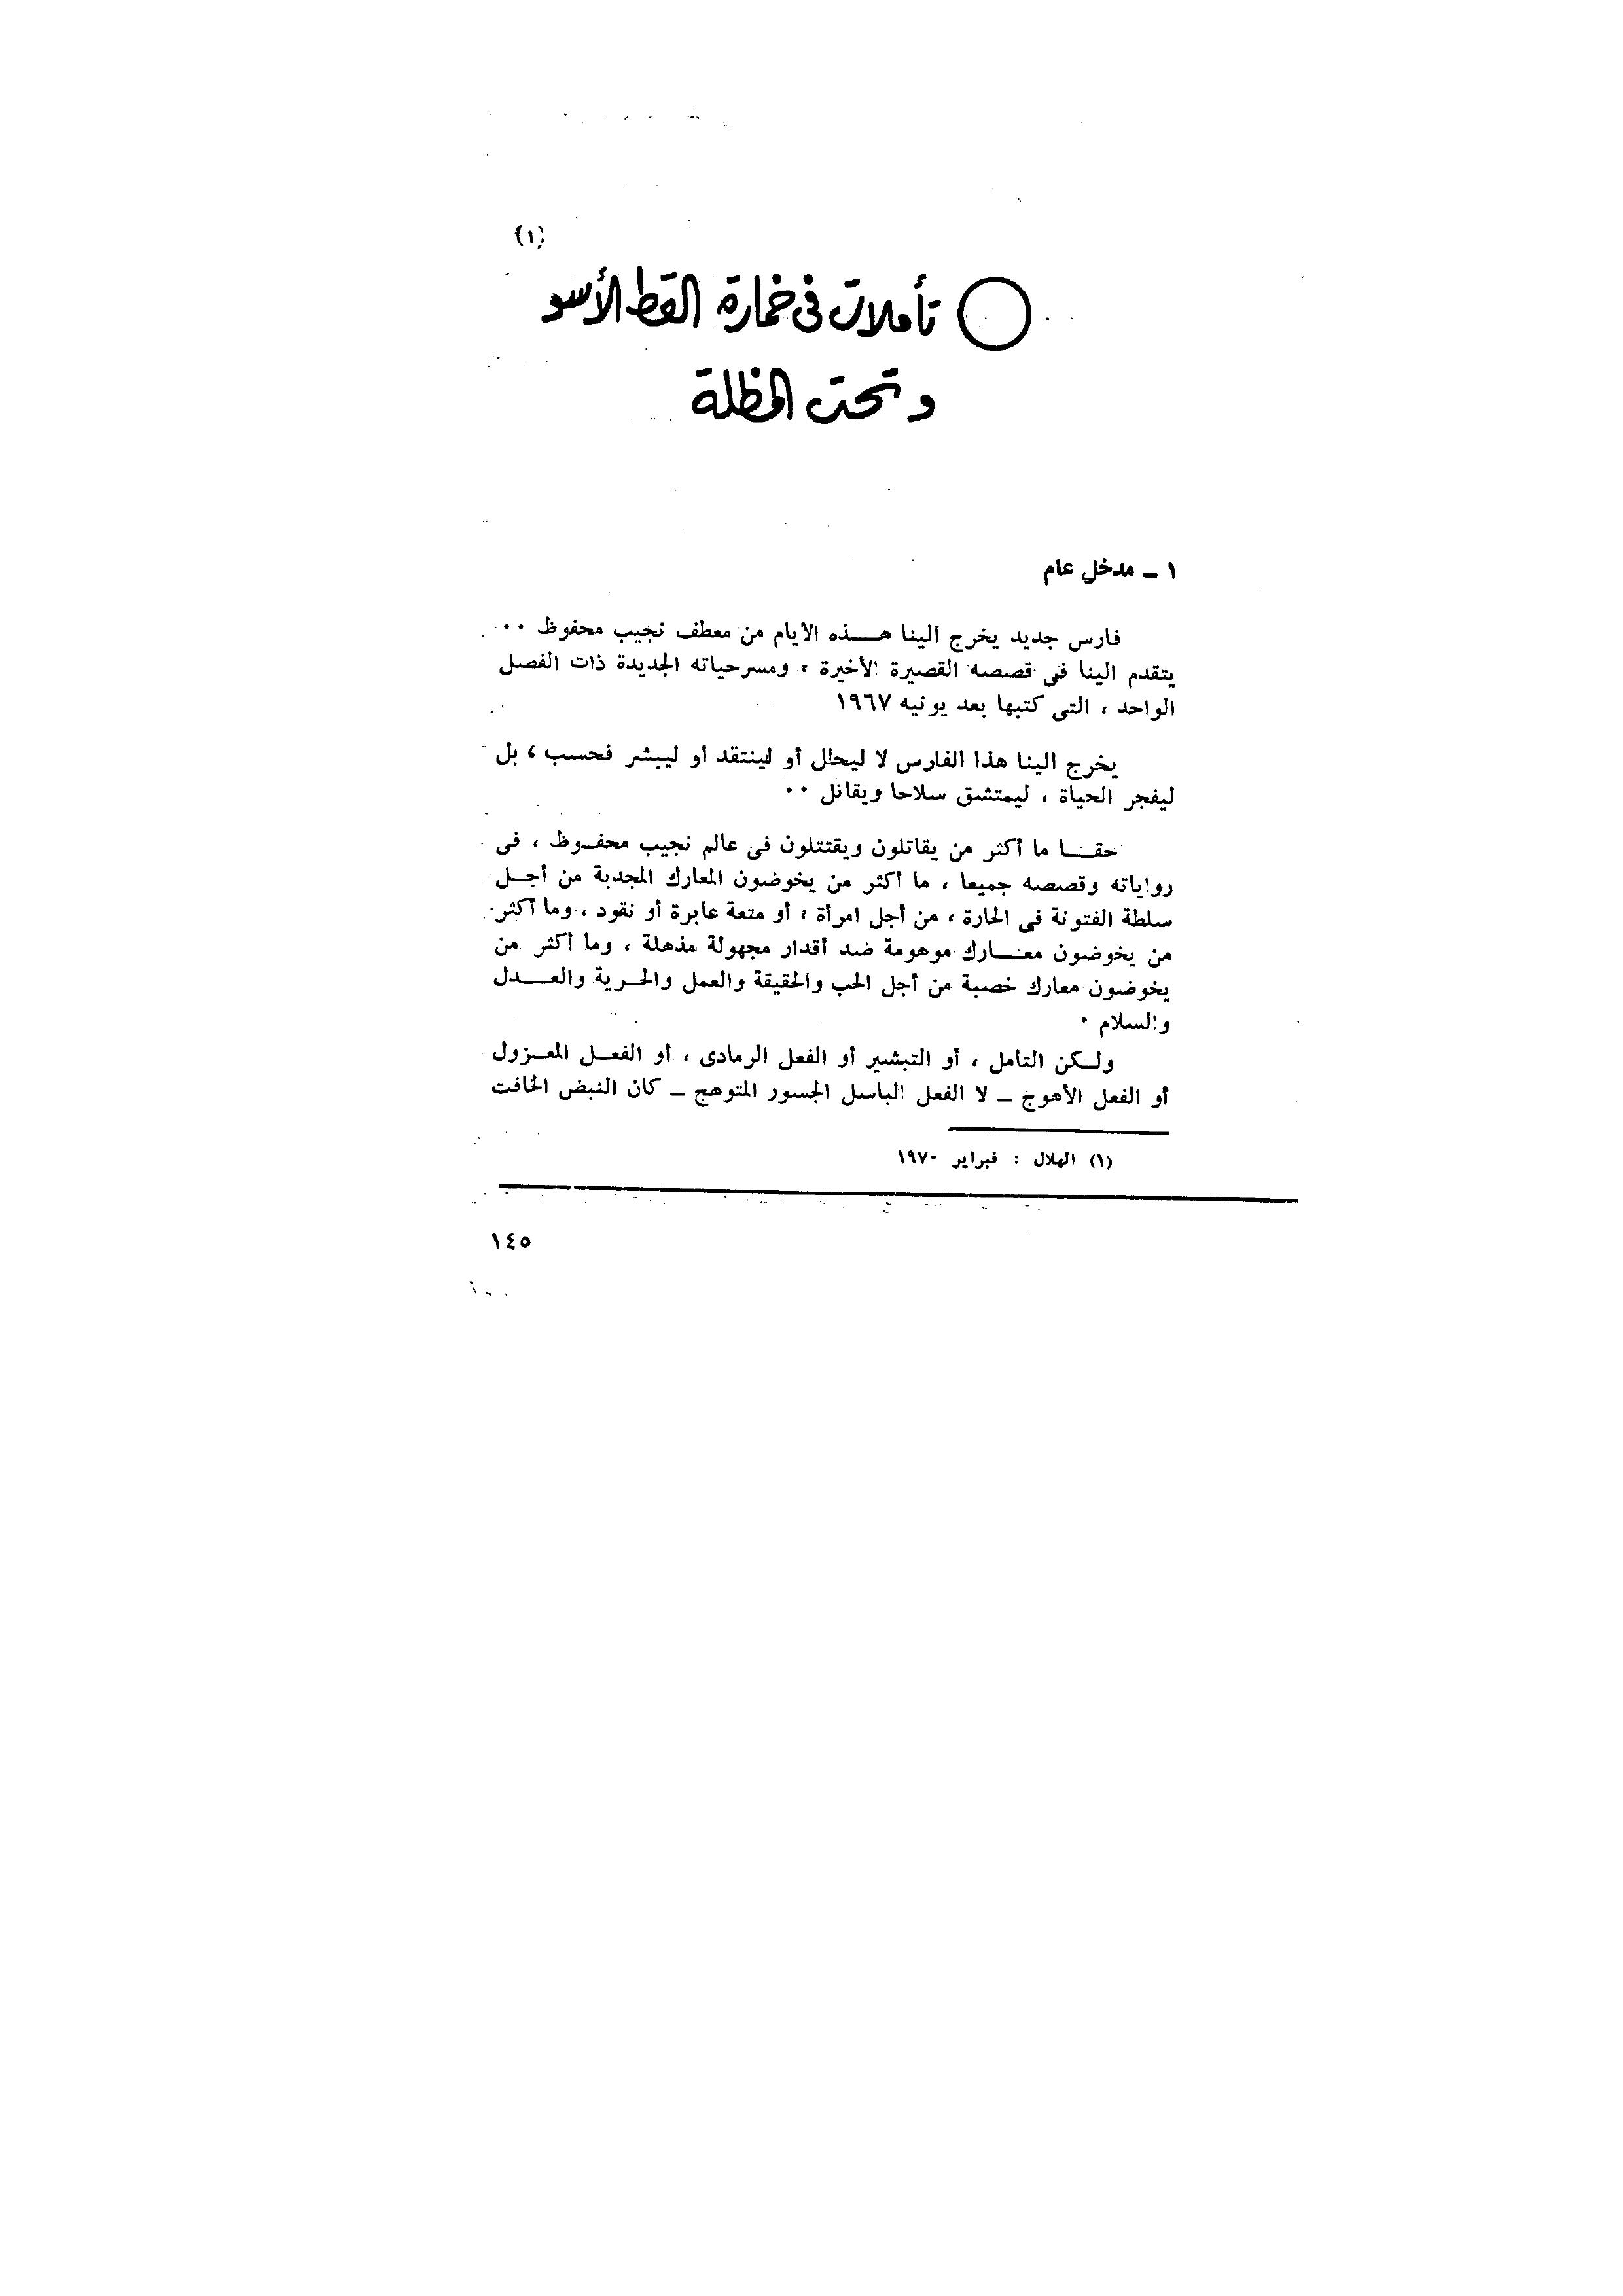 (١)
تأملات فى خمارة القط الأسو
د تحت المظلة
١ ــ مدخل عام
فارس جديد يخرج الينا هـــذه الأيام من معطف نجيب محفوظ ٠٠
يتقدم الينا فى قصصه القصيرة الأخيرة ، ومسرحياته الجديدة ذات الفصل
الواحد ، التى كتبها بعد يونيه ١٩٦٧
يخرج الينا هذا الفارس لا ليحلل أو لينتقد أو ليبشر فحسب ، بل
ليفجر الحياة ، ليمتشق سلاحا ويقاتل ٠٠
حقـــا ما أكثر من يقاتلون ويقتتلون فى عالم نجيب محفـوظ ، فى
رواياته وقصصه جميعا ، ما أكثر من يخوضون المعارك المجدبة من أجـل
سلطة الفتونة فى الحارة ، من أجل امرأة ، أو متعة عابرة أو نقود ، وما أكثر
من يخوضون معـــارك موهومة ضد أقدار مجهولة مذهلة ، وما أكثر من
يخوضون معارك خصبة من أجل الحب والحقيقة والعمل والحـرية والعـــدل
والسلام ٠
ولـكن التأمل ، أو التبشير أو الفعل الرمادى ، أو الفعـل المعـزول
أو الفعل الأهوج ــ لا الفعل الباسل الجسور المتوهج ــ كان النبض الخافت
(١) الهلال : فبراير ١٩٧٠
١٤٥